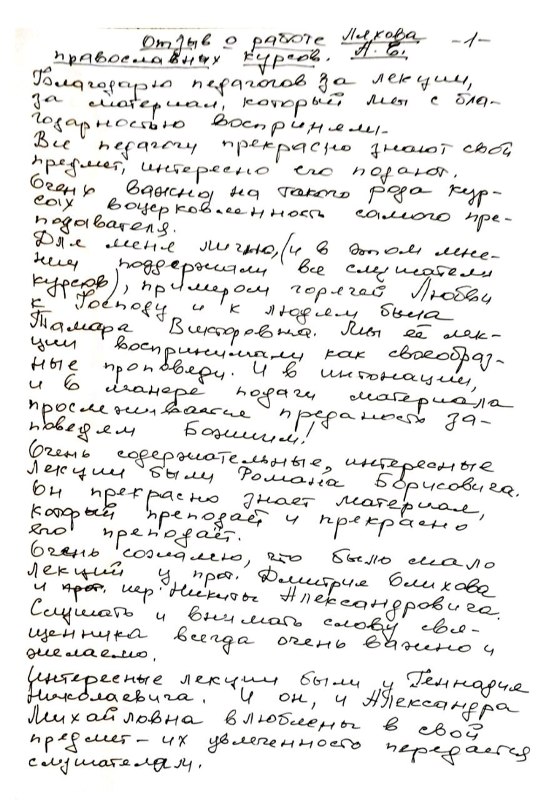 Отзыв о работе Ляхова -1-
православных курсов. А. Е.
Благодарю педагогов за лекции,
за материал, который мы с бла-
годарностью восприняли.
Все педагоги прекрасно знают свой
предмет, интересно его подают.
Очень важно на такого рода кур-
сах воцерковленность самого пре-
подавателя.
Для меня лично, (и в этом мне-
нии поддержали все слушатели
курсов), примером горячей Любви
к Господу и к людем была
Тамара Викторовна. Мы её лек-
ции воспринимали как своеобраз-
ные проповеди. И в интонации,
и в манере подачи материала
прослеживается преданость за-
поведям Божиим!
Очень содержательные, интересные
лекции были Романа Борисовича.
Он прекрасно знает материал,
который преподаёт и прекрасно
его преподаёт.
Очень сожалею, что было мало
лекций у прот. Дмитрия Олихова
и иер. Никиты Александровича.
Слушать и внимать слову свя-
щенника всегда очень важно и
желаемо.
Интересные лекции были у Геннадия
Николаевича. И он, и Александра
Михайловна влюблены в свой
предмет - их увлеченность передаётся
слушателям.